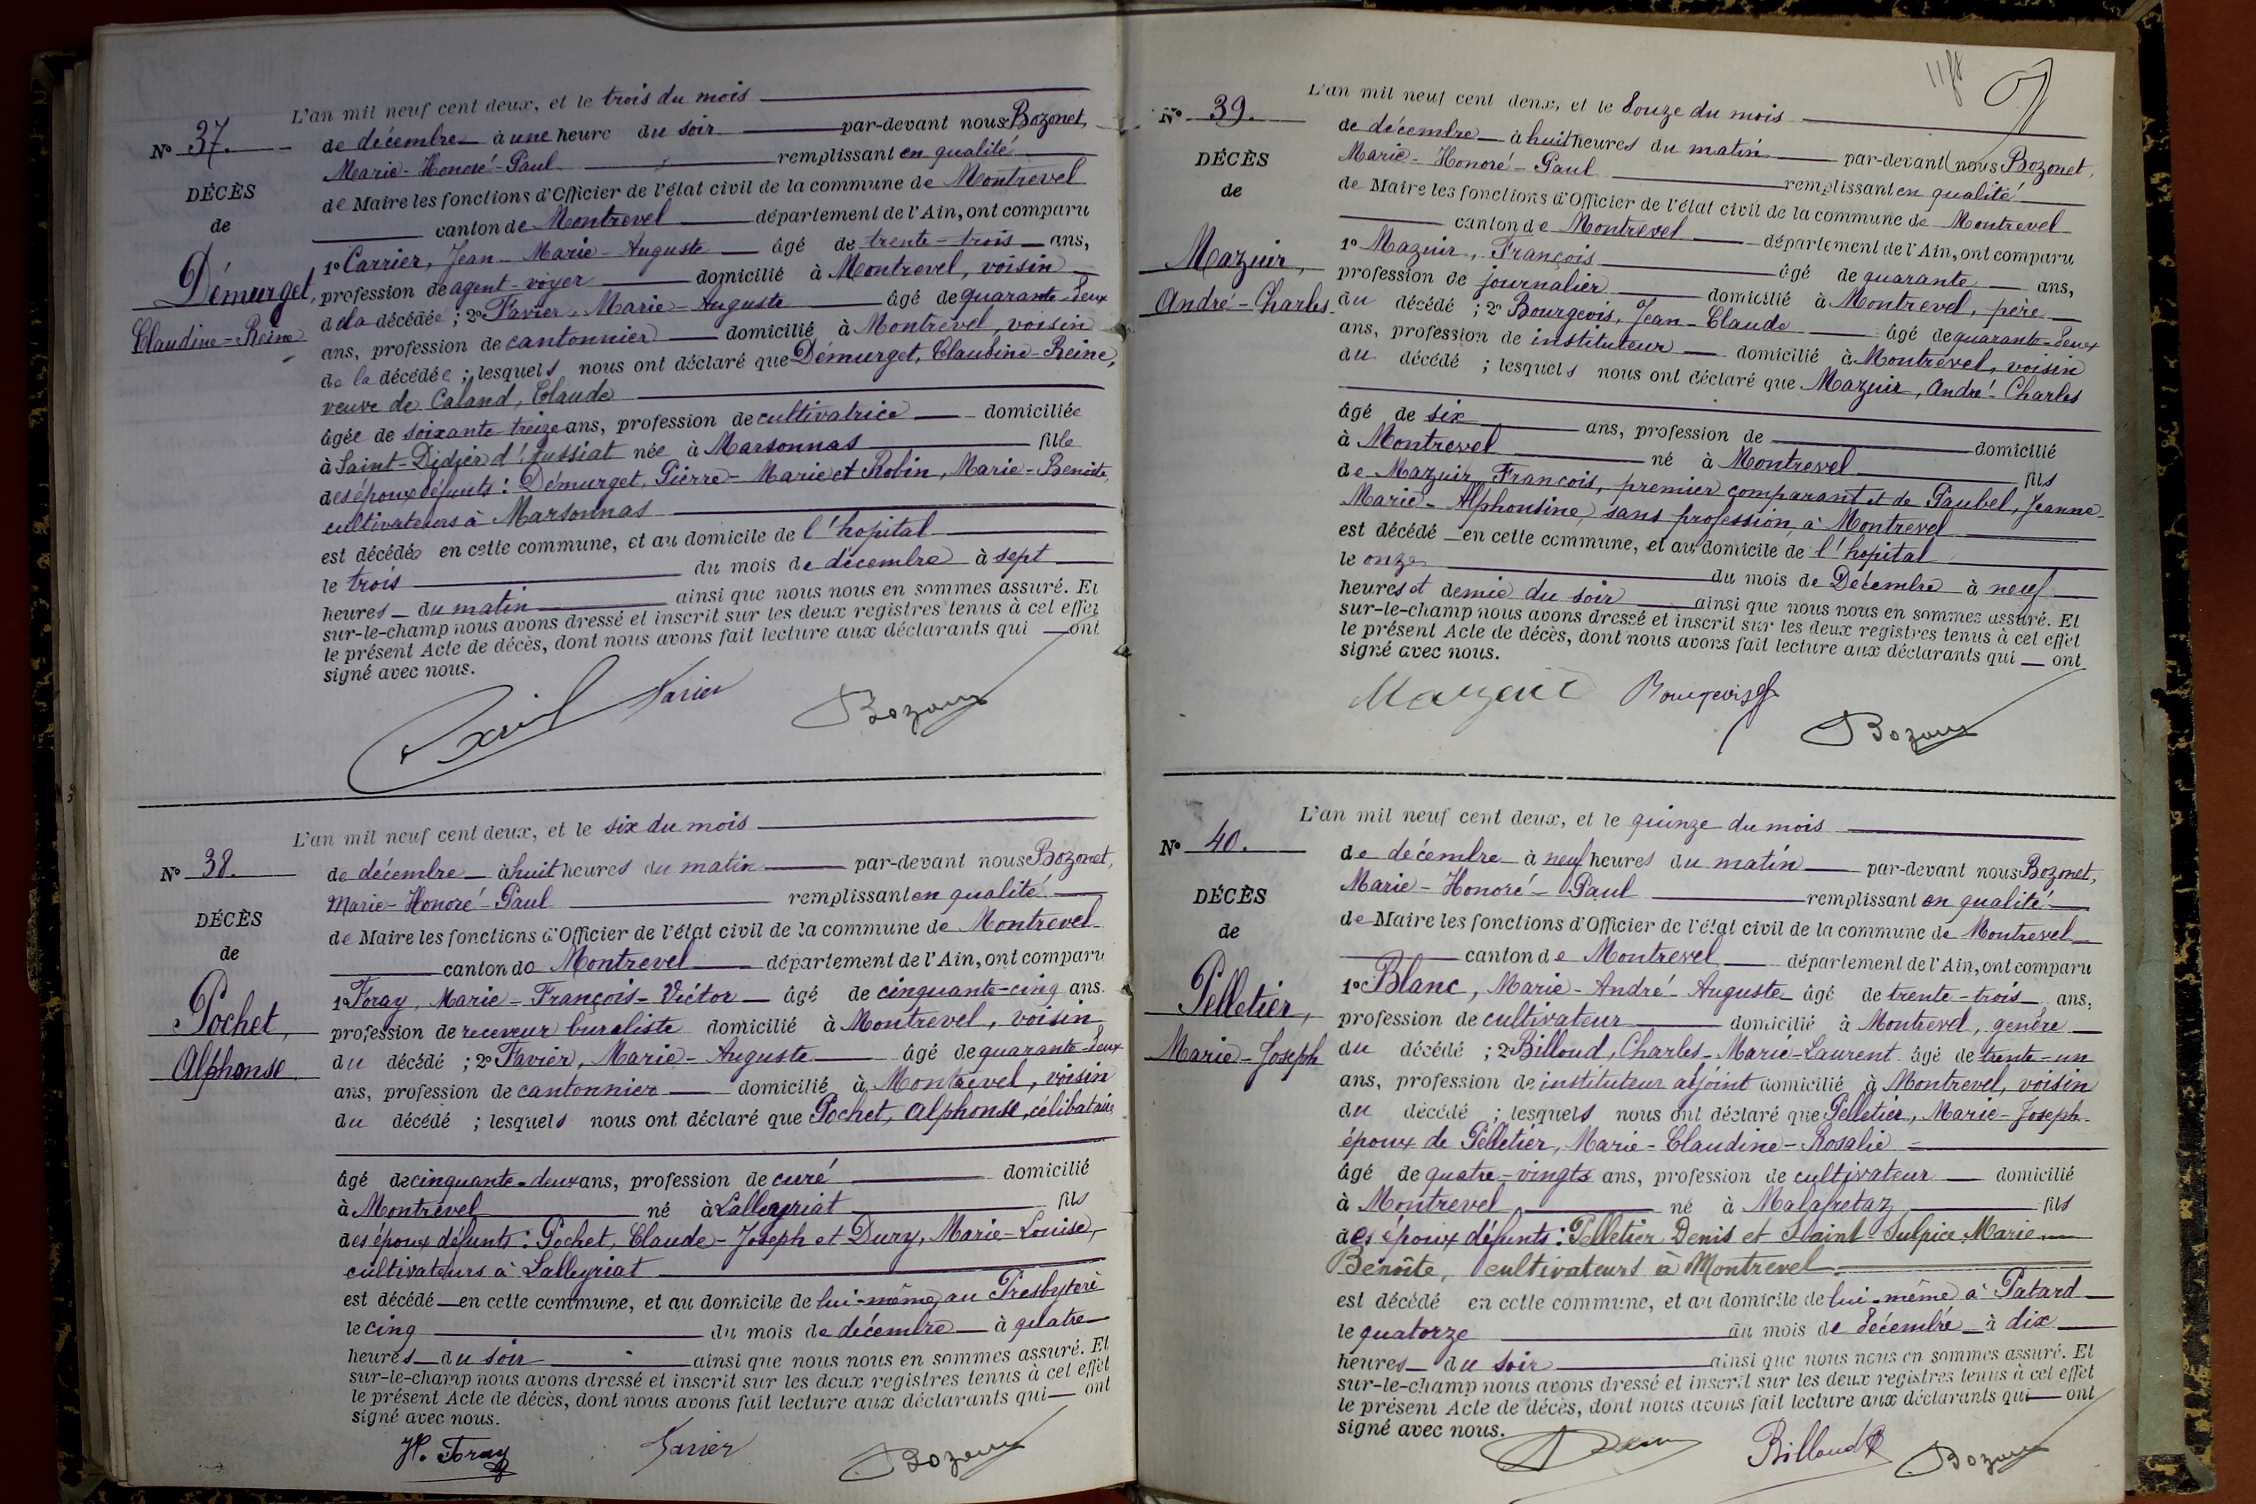 L'an mil neuf cent deux, et le trois du mois
Nº 37.
de décembre à une heure du soir par-devant nous Bozonet,
Marie-Honoré-Paul remplissant en qualité
DÉCÈS
de Maire les fonctions d'Officier de l'état civil de la commune de Montrevel
de
canton de Montrevel département de l'Ain, ont comparu
1º Carrier, Jean-Marie-Auguste âgé de trente-trois ans,
Démurget,
profession de agent-voyer domicilié à Montrevel, voisin
de la décédée ; 2º Favier, Marie-Auguste âgé de quarante-deux
Claudine-Reine
ans, profession de cantonnier domicilié à Montrevel, voisin
de la décédée ; lesquels nous ont déclaré que Démurget, Claudine-Reine,
veuve de Caland, Claude
âgée de soixante-treize ans, profession de cultivatrice domiciliée
à Saint-Didier d'Aussiat née à Marsonnas fille
des époux défunts : Démurget, Pierre-Marie et Robin, Marie-Benoite,
cultivateurs à Marsonnas
est décédée en cette commune, et au domicile de l'hopital
le trois du mois de décembre à sept
heures du matin ainsi que nous nous en sommes assuré. Et
sur-le-champ nous avons dressé et inscrit sur les deux registres tenus à cet effet
le présent Acte de décès, dont nous avons fait lecture aux déclarants qui ont
signé avec nous.
Favier Bozonet
L'an mil neuf cent deux, et le six du mois
Nº 38.
de décembre à huit heures du matin par-devant nous Bozonet,
Marie-Honoré-Paul remplissant en qualité
DÉCÈS
de Maire les fonctions d'Officier de l'état civil de la commune de Montrevel
de
canton de Montrevel département de l'Ain, ont comparu
1º Foray, Marie-François-Victor âgé de cinquante-cinq ans.
Pochet,
profession de receveur buraliste domicilié à Montrevel, voisin
du décédé ; 2º Favier, Marie-Auguste âgé de quarante-deux
Alphonse
ans, profession de cantonnier domicilié à Montrevel, voisin
du décédé ; lesquels nous ont déclaré que Pochet, Alphonse, célibataire
âgé de cinquante-deux ans, profession de curé domicilié
à Montrevel né à Lalleyriat fils
des époux défunts : Pochet, Claude-Joseph et Dury, Marie-Louise,
cultivateurs à Lalleyriat
est décédé en cette commune, et au domicile de lui-même au Presbytère
le cinq du mois de décembre à quatre
heures du soir ainsi que nous nous en sommes assuré. Et
sur-le-champ nous avons dressé et inscrit sur les deux registres tenus à cet effet
le présent Acte de décès, dont nous avons fait lecture aux déclarants qui ont
signé avec nous.
Foray Favier Bozonet
L'an mil neuf cent deux, et le douze du mois
Nº 39.
de décembre à huit heures du matin par-devant nous Bozonet,
Marie-Honoré-Paul remplissant en qualité
DÉCÈS
de Maire les fonctions d'Officier de l'état civil de la commune de Montrevel
de
canton de Montrevel département de l'Ain, ont comparu
1º Mazuir, François âgé de quarante ans,
Mazuir,
profession de journalier domicilié à Montrevel, père
André-Charles
du décédé ; 2º Bourgeois, Jean-Claude âgé de quarante-deux
ans, profession de instituteur domicilié à Montrevel, voisin
du décédé ; lesquels nous ont déclaré que Mazuir, André-Charles
âgé de six ans, profession de domicilié
à Montrevel né à Montrevel fils
de Mazuir, François, premier comparant et de Paubel, Jeanne-
Marie-Alphonsine, sans profession à Montrevel
est décédé en cette commune, et au domicile de l'hopital
le onze du mois de Décembre à neuf
heures et demie du soir ainsi que nous nous en sommes assuré. Et
sur-le-champ nous avons dressé et inscrit sur les deux registres tenus à cet effet
le présent Acte de décès, dont nous avons fait lecture aux déclarants qui ont
signé avec nous.
Mazuir Bourgeois Bozonet
L'an mil neuf cent deux, et le quinze du mois
Nº 40.
de décembre à neuf heures du matin par-devant nous Bozonet,
Marie-Honoré-Paul remplissant en qualité
DÉCÈS
de Maire les fonctions d'Officier de l'état civil de la commune de Montrevel
de
canton de Montrevel département de l'Ain, ont comparu
1º Blanc, Marie-André-Auguste âgé de trente-trois ans,
Pelletier,
profession de cultivateur domicilié à Montrevel, gendre
Marie-Joseph
du décédé ; 2º Billoud, Charles-Marie-Laurent âgé de trente-un
ans, profession de instituteur adjoint domicilié à Montrevel, voisin
du décédé ; lesquels nous ont déclaré que Pelletier, Marie-Joseph-
époux de Pelletier, Marie-Claudine-Rosalie
âgé de quatre-vingts ans, profession de cultivateur domicilié
à Montrevel né à Malafretaz fils
des époux défunts : Pelletier Denis et Saint Sulpice Marie
Benoîte, cultivateurs à Montrevel
est décédé en cette commune, et au domicile de lui-même à Patard
le quatorze du mois de décembre à dix
heures du soir ainsi que nous nous en sommes assuré. Et
sur-le-champ nous avons dressé et inscrit sur les deux registres tenus à cet effet
le présent Acte de décès, dont nous avons fait lecture aux déclarants qui ont
signé avec nous.
Billoud Bozonet